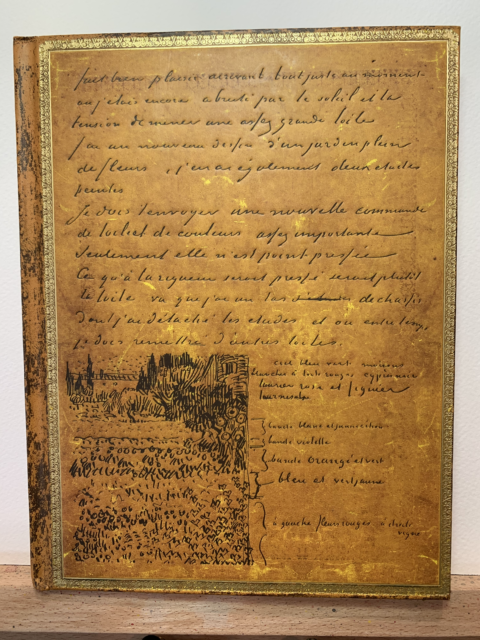 fait bien plaisir arrivant tout juste au moment
où j'étais encore abruti par le soleil et la
tension de mener une assez grande toile
J'ai un nouveau dessin d'un jardin plein
de fleurs, j'en ai également deux études
peintes
Je dois t'envoyer une nouvelle commande
de toile et de couleurs assez importante
Seulement elle n'est point pressée
Ce qu'à la rigueur serait pressé serait plutôt
la toile vu que j'ai un tas de chassis
dont j'ai détaché les études et où entretemps
je dois remettre d'autres toiles.
ciel bleu vert maisons
blanches à toits rouges cyprès
laurier rose et figuier
tournesols
bande blanc et jaune
bande violette
bande orangé et vert
bleu et vert jaune
à gauche fleurs rouges à droite
vigne